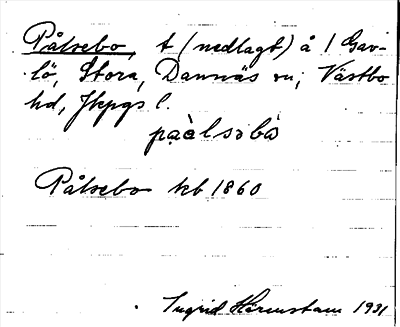 Pålsebo, t (nedlagt) å 1 Gav-
lö, Stora, Dannäs sn; Västbo
hd, Jkpgs l.
på̤̀lsɘbò
Pålsebo kb 1860
Ingrid Hörnstam 1931